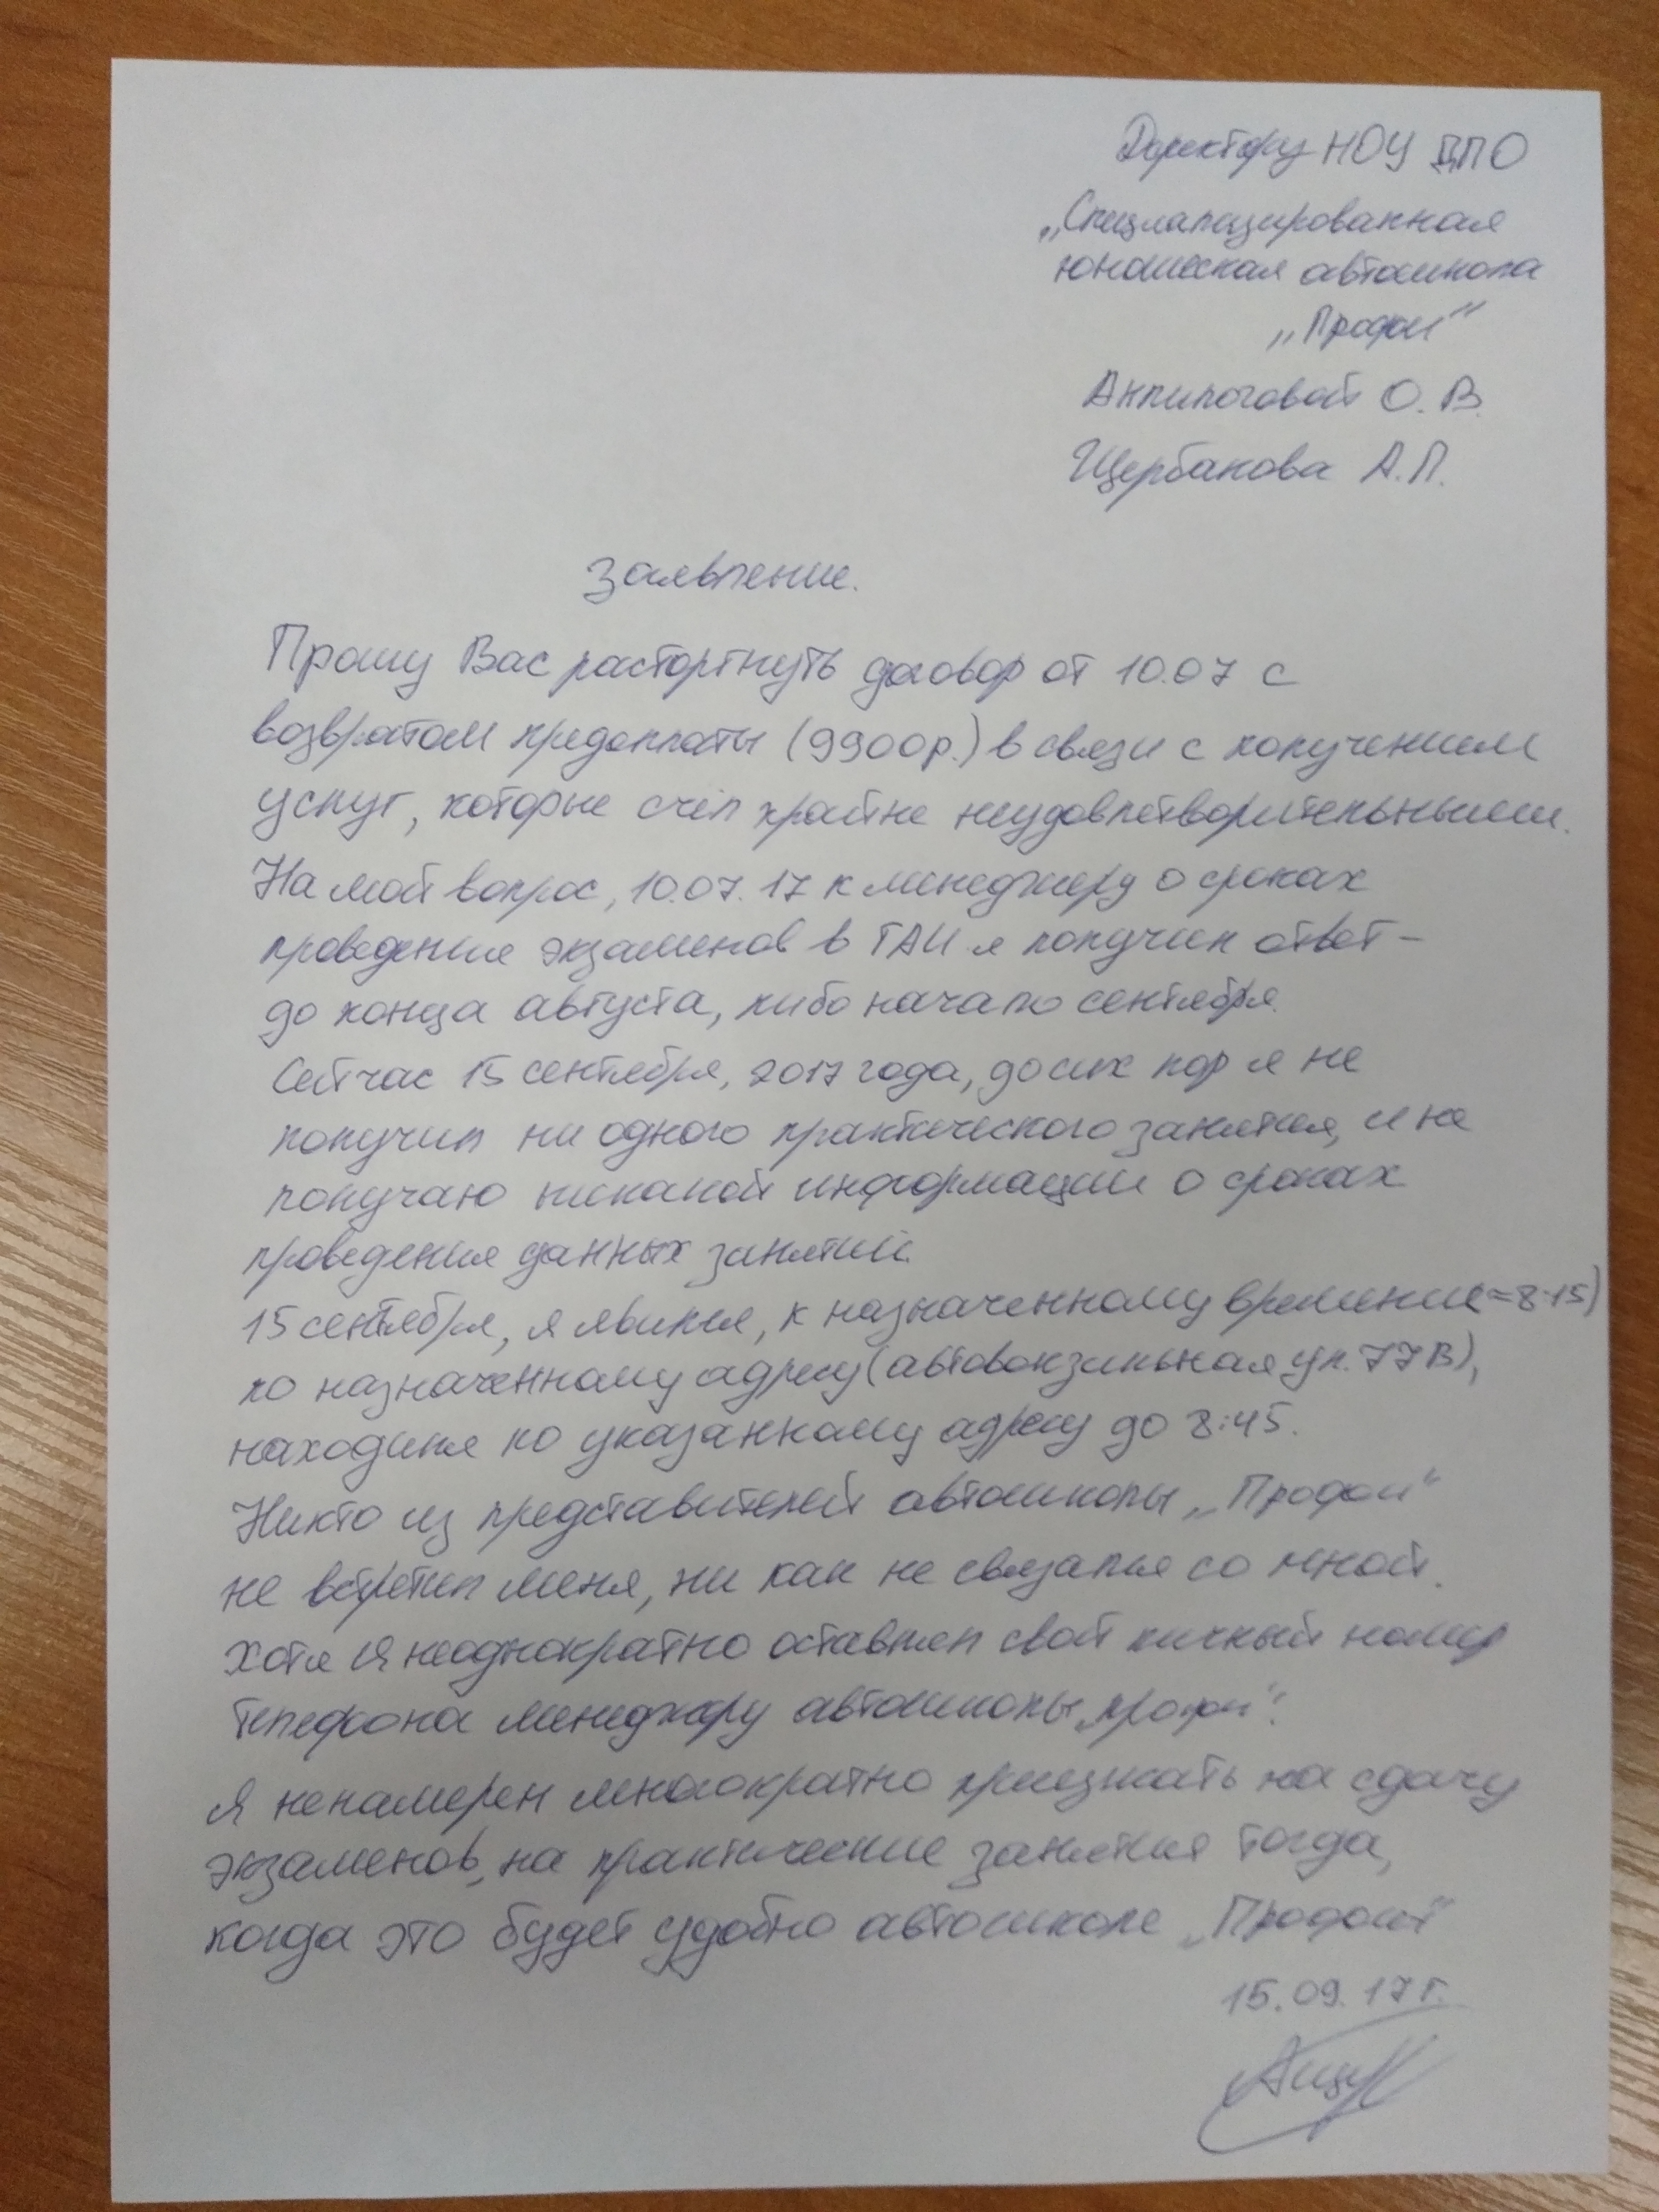 Директору НОУ ДПО
„Специализированная
юношеская автошкола
„Профи"
Анпилоговой О. В.
Щербакова А.П.
Заявление.
Прошу Вас расторгнуть договор от 10.07 с
возвратом предоплаты (9900р.) в связи с получением
услуг, которые счёл крайне неудовлетворительными.
На мой вопрос, 10.07.17 к менеджеру о сроках
проведения экзаменов в ГАИ я получил ответ –
до конца августа, либо начало сентября.
Сейчас 15 сентября, 2017 года, до сих пор я не
получил ни одного практического занятия, и не
получаю никакой информации о сроках
проведения данных занятий.
15 сентября, я явился, к назначенному времени(=8:15)
по назначенному адресу (автовокзальная ул. 77В),
находился по указанному адресу до 8:45.
Никто из представителей автошколы „Профи"
не встретил меня, ни как не связался со мной.
Хотя я неоднократно оставлял свой личный номер
телефона менеджеру автошколы „профи".
Я ненамерен многократно приезжать на сдачу
экзаменов, на практические занятия тогда,
когда это будет удобно автошколе „Профи"
15.09.17г.